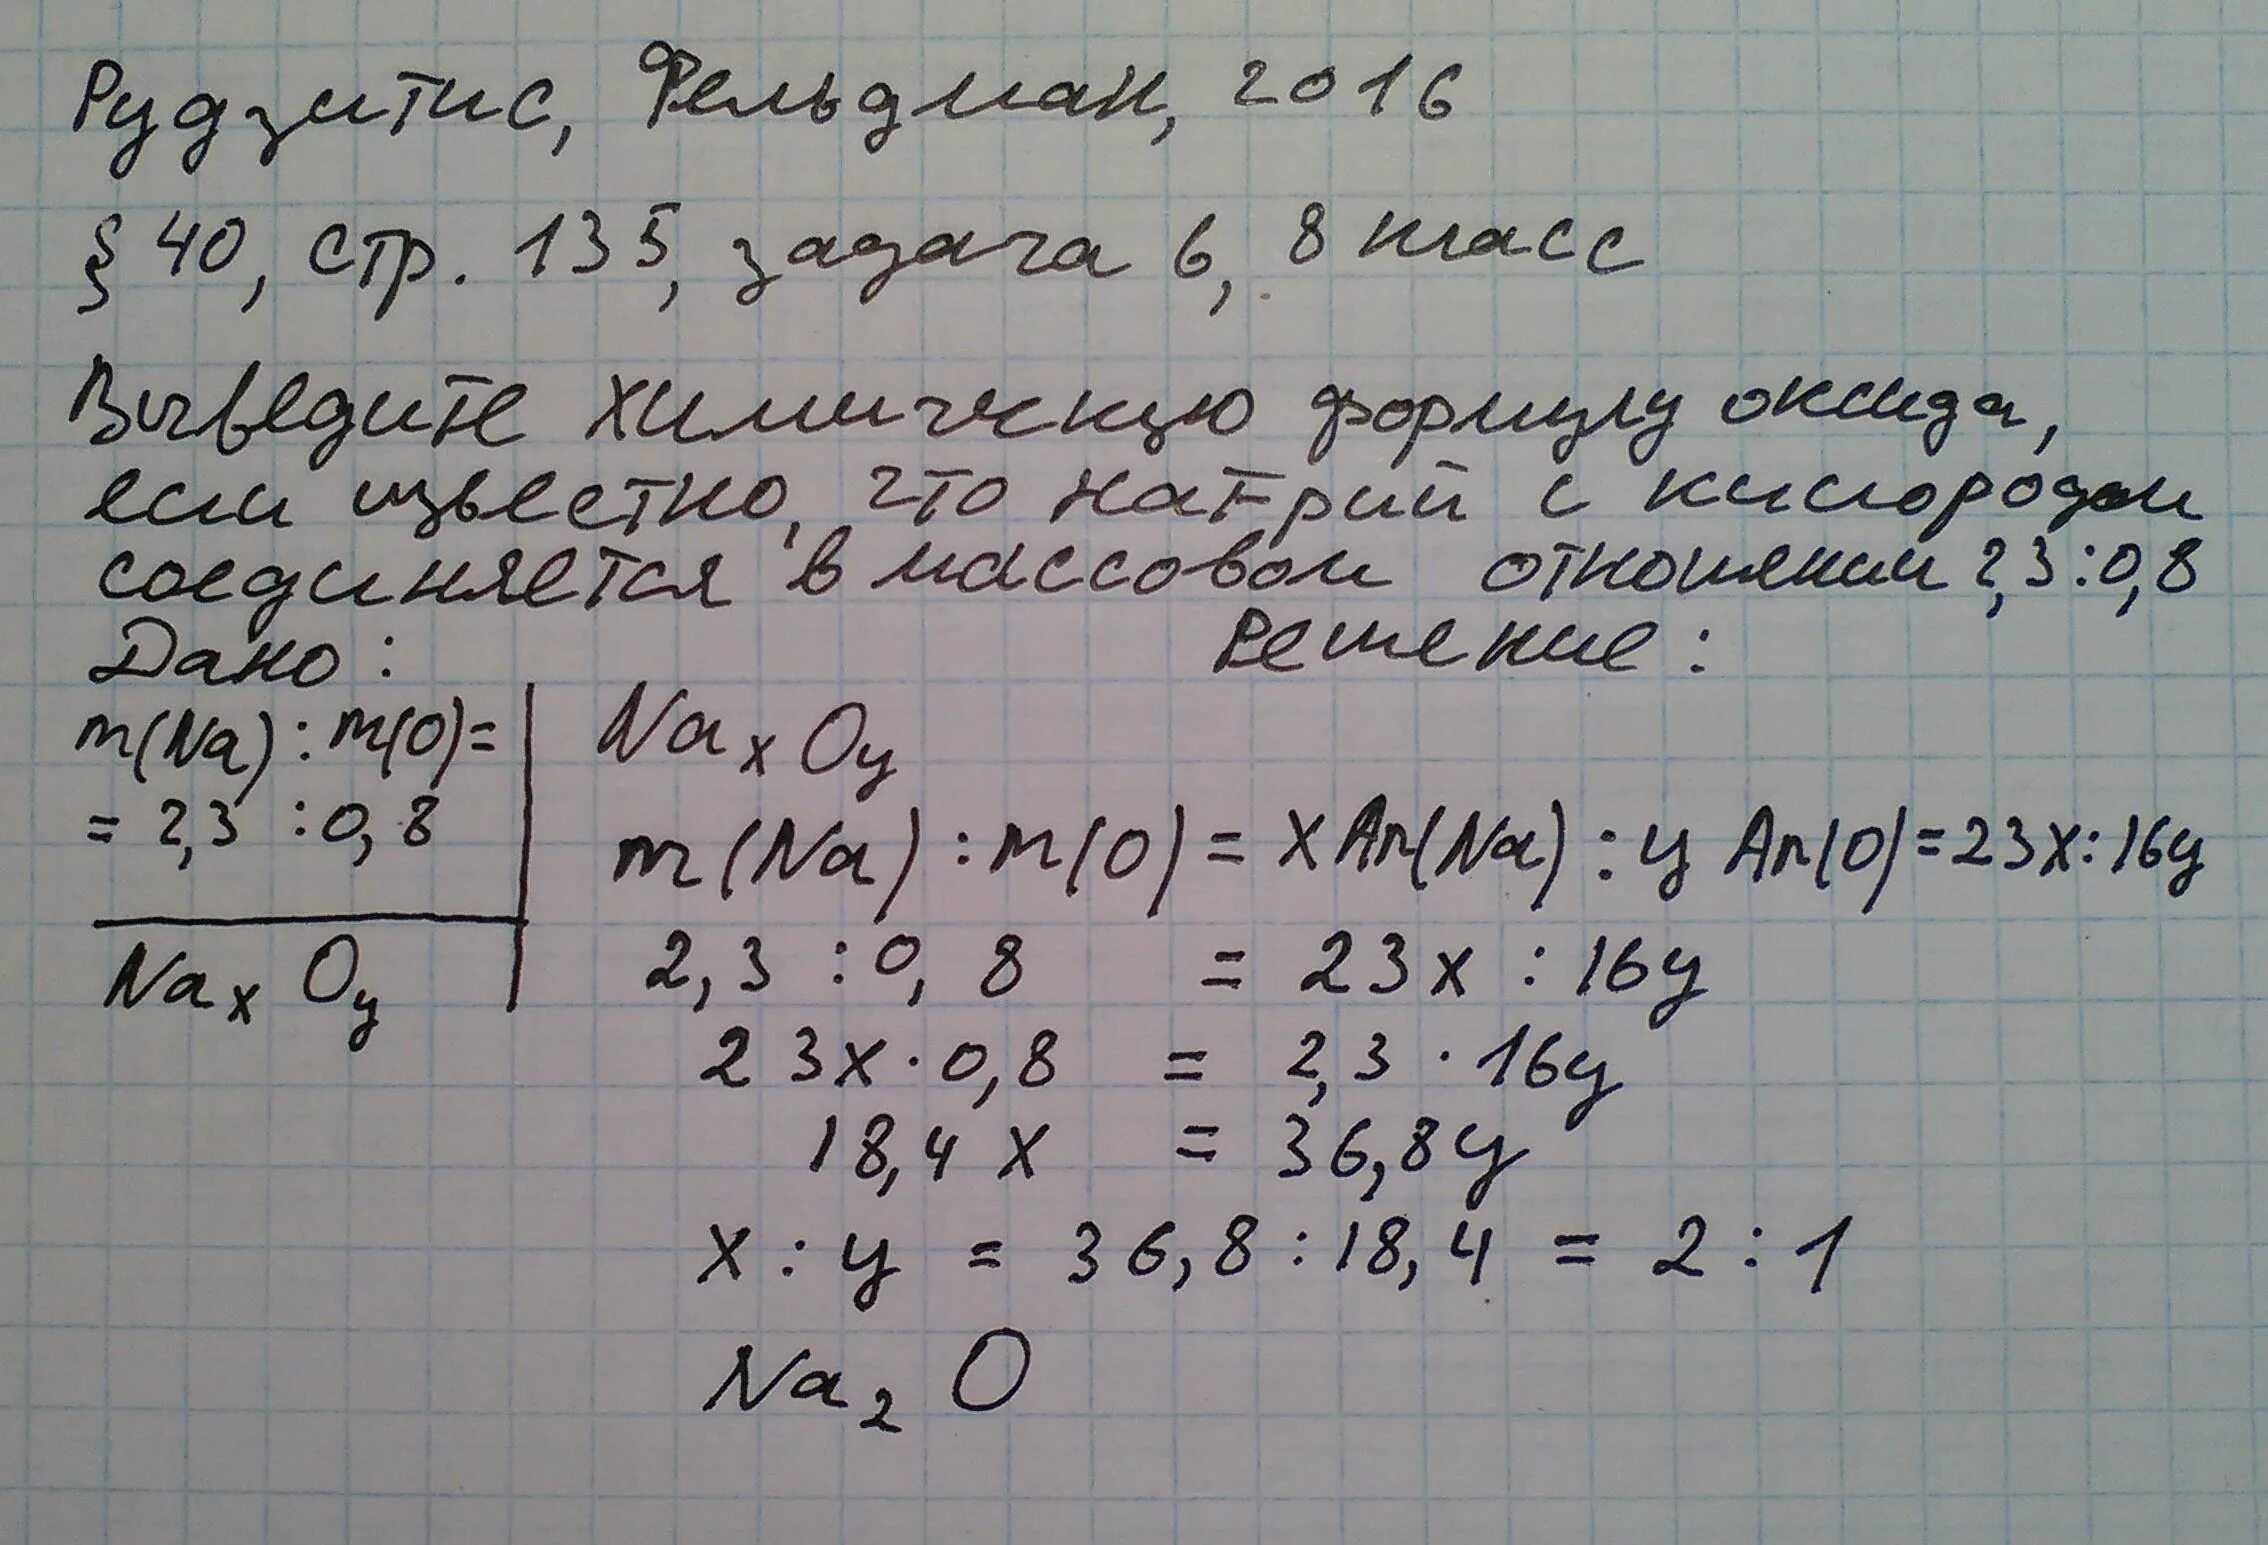 Рудзитис, Фельдман, 2016
§ 40, стр. 135, задача 6, 8 класс
Выведите химическую формулу оксида,
если известно, что натрий с кислородом
соединяется в массовом отношении 2,3:0,8
Дано:
m(Na):m(O)=
= 2,3 :0,8
Naₓ Oy
Решение:
Naₓ Oy
m(Na):m(O)= x Ar(Na):y Ar(O)=23x:16y
2,3 :0,8 = 23x : 16y
23x·0,8 = 2,3 · 16y
18,4 x = 36,8y
x : y = 36,8:18,4 = 2:1
Na₂ O